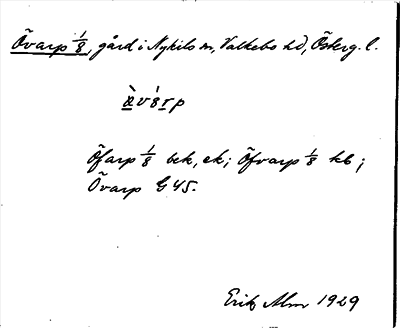 Övarp 1/8, gård i Nykils sn, Valkebo hd, Österg. l.
Öfarp 1/8 bek, ek; Öfvarp 1/8 kb;
Övarp G45.
Erik Alm 1929